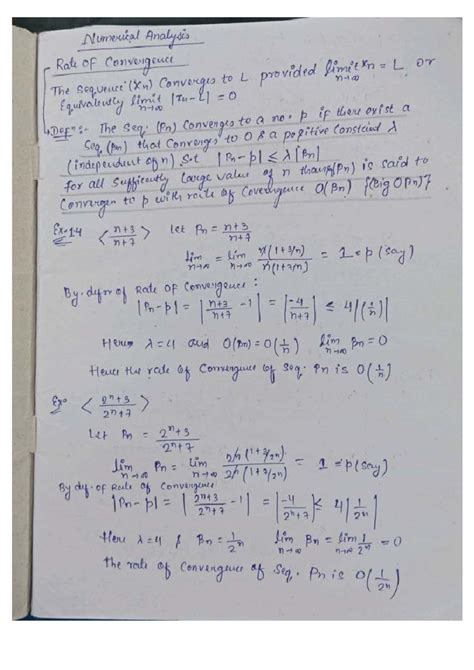 Numerical Analysis
Rate Of Convergence
The Sequence (xn) Converges to L provided limit n→∞ xn = L or
Equivalently limit n→∞ |xn-L| = 0
→ Defⁿ :- The Seq. (Pn) Converges to a no. p if there exist a
Seq. (βn) that Converges to 0 & a positive Constant λ
(independent of n) s.t |Pn-p| ≤ λ|βn|
for all Sufficiently large value of n then (Pn) is said to
Converges to p with rate of Covergence O(βn) {Big O(βn)}
Ex: 14 < n+3 / n+7 > let Pn = n+3 / n+7
lim n→∞ = lim n→∞ n(1+3/n) / n(1+7/n) = 1 = p (say)
By defn of Rate Of Convergence :
|Pn-p| = | n+3 / n+7 - 1 | = | -4 / n+7 | ≤ 4|(1/n)|
Here λ=4 and O(βn) = O(1/n) lim n→∞ βn = 0
Hence the rate of Convergence of Seq. Pn is O(1/n)
Ex: < 2ⁿ+3 / 2ⁿ+7 >
Let Pn = 2ⁿ+3 / 2ⁿ+7
lim n→∞ Pn = lim n→∞ 2ⁿ(1+3/2ⁿ) / 2ⁿ(1+7/2ⁿ) = 1 = p (say)
By def. of Rate Of Convergence
|Pn-p| = | 2ⁿ+3 / 2ⁿ+7 - 1 | = | -4 / 2ⁿ+7 | ≤ 4| 1/2ⁿ |
Here λ=4 & βn = 1/2ⁿ lim n→∞ βn = lim n→∞ 1/2ⁿ = 0
The rate of Convergence of Seq. Pn is O(1/2ⁿ)